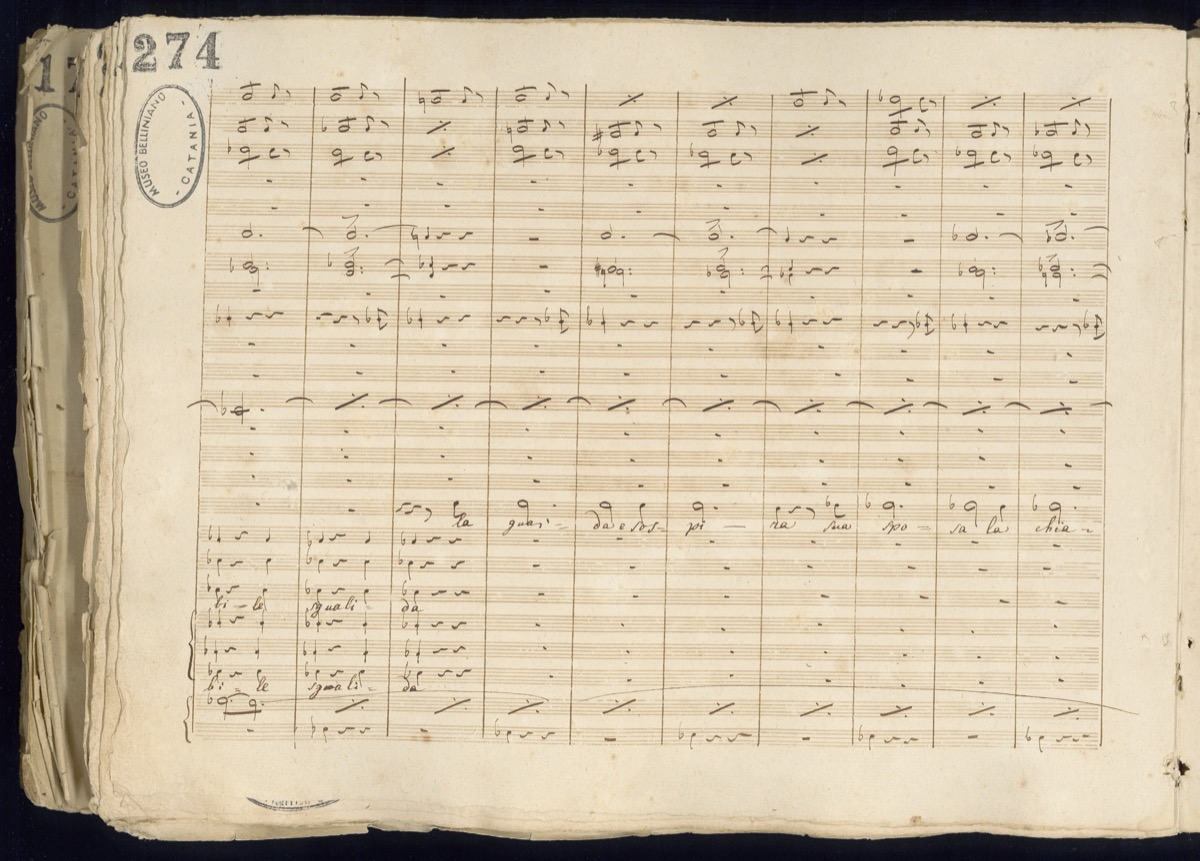 274
17
MUSEO BELLINIANO
- CATANIA -
la guai = da e sos = pi — ra sua spo = sa la chia =
li = le squali = da
bi = le squali = da